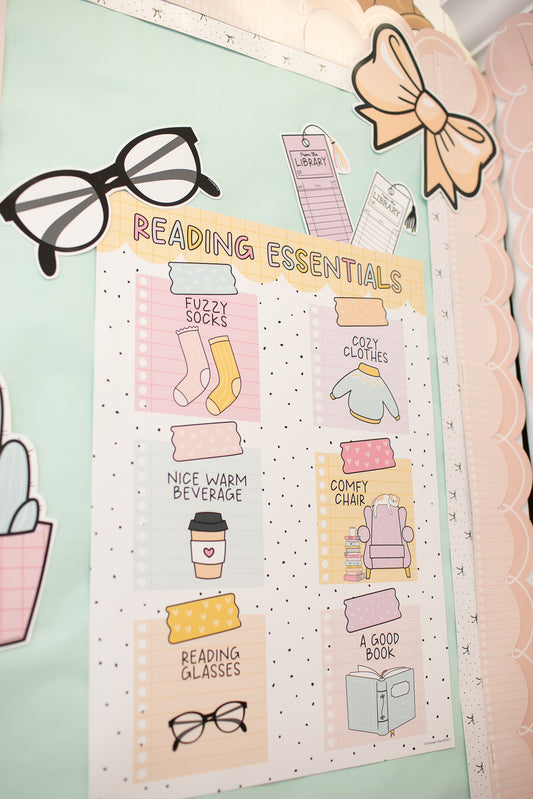 From the
LIBRARY
From the
LIBRARY
READING ESSENTIALS
FUZZY
SOCKS
COZY
CLOTHES
NICE WARM
BEVERAGE
COMFY
CHAIR
READING
GLASSES
A GOOD
BOOK